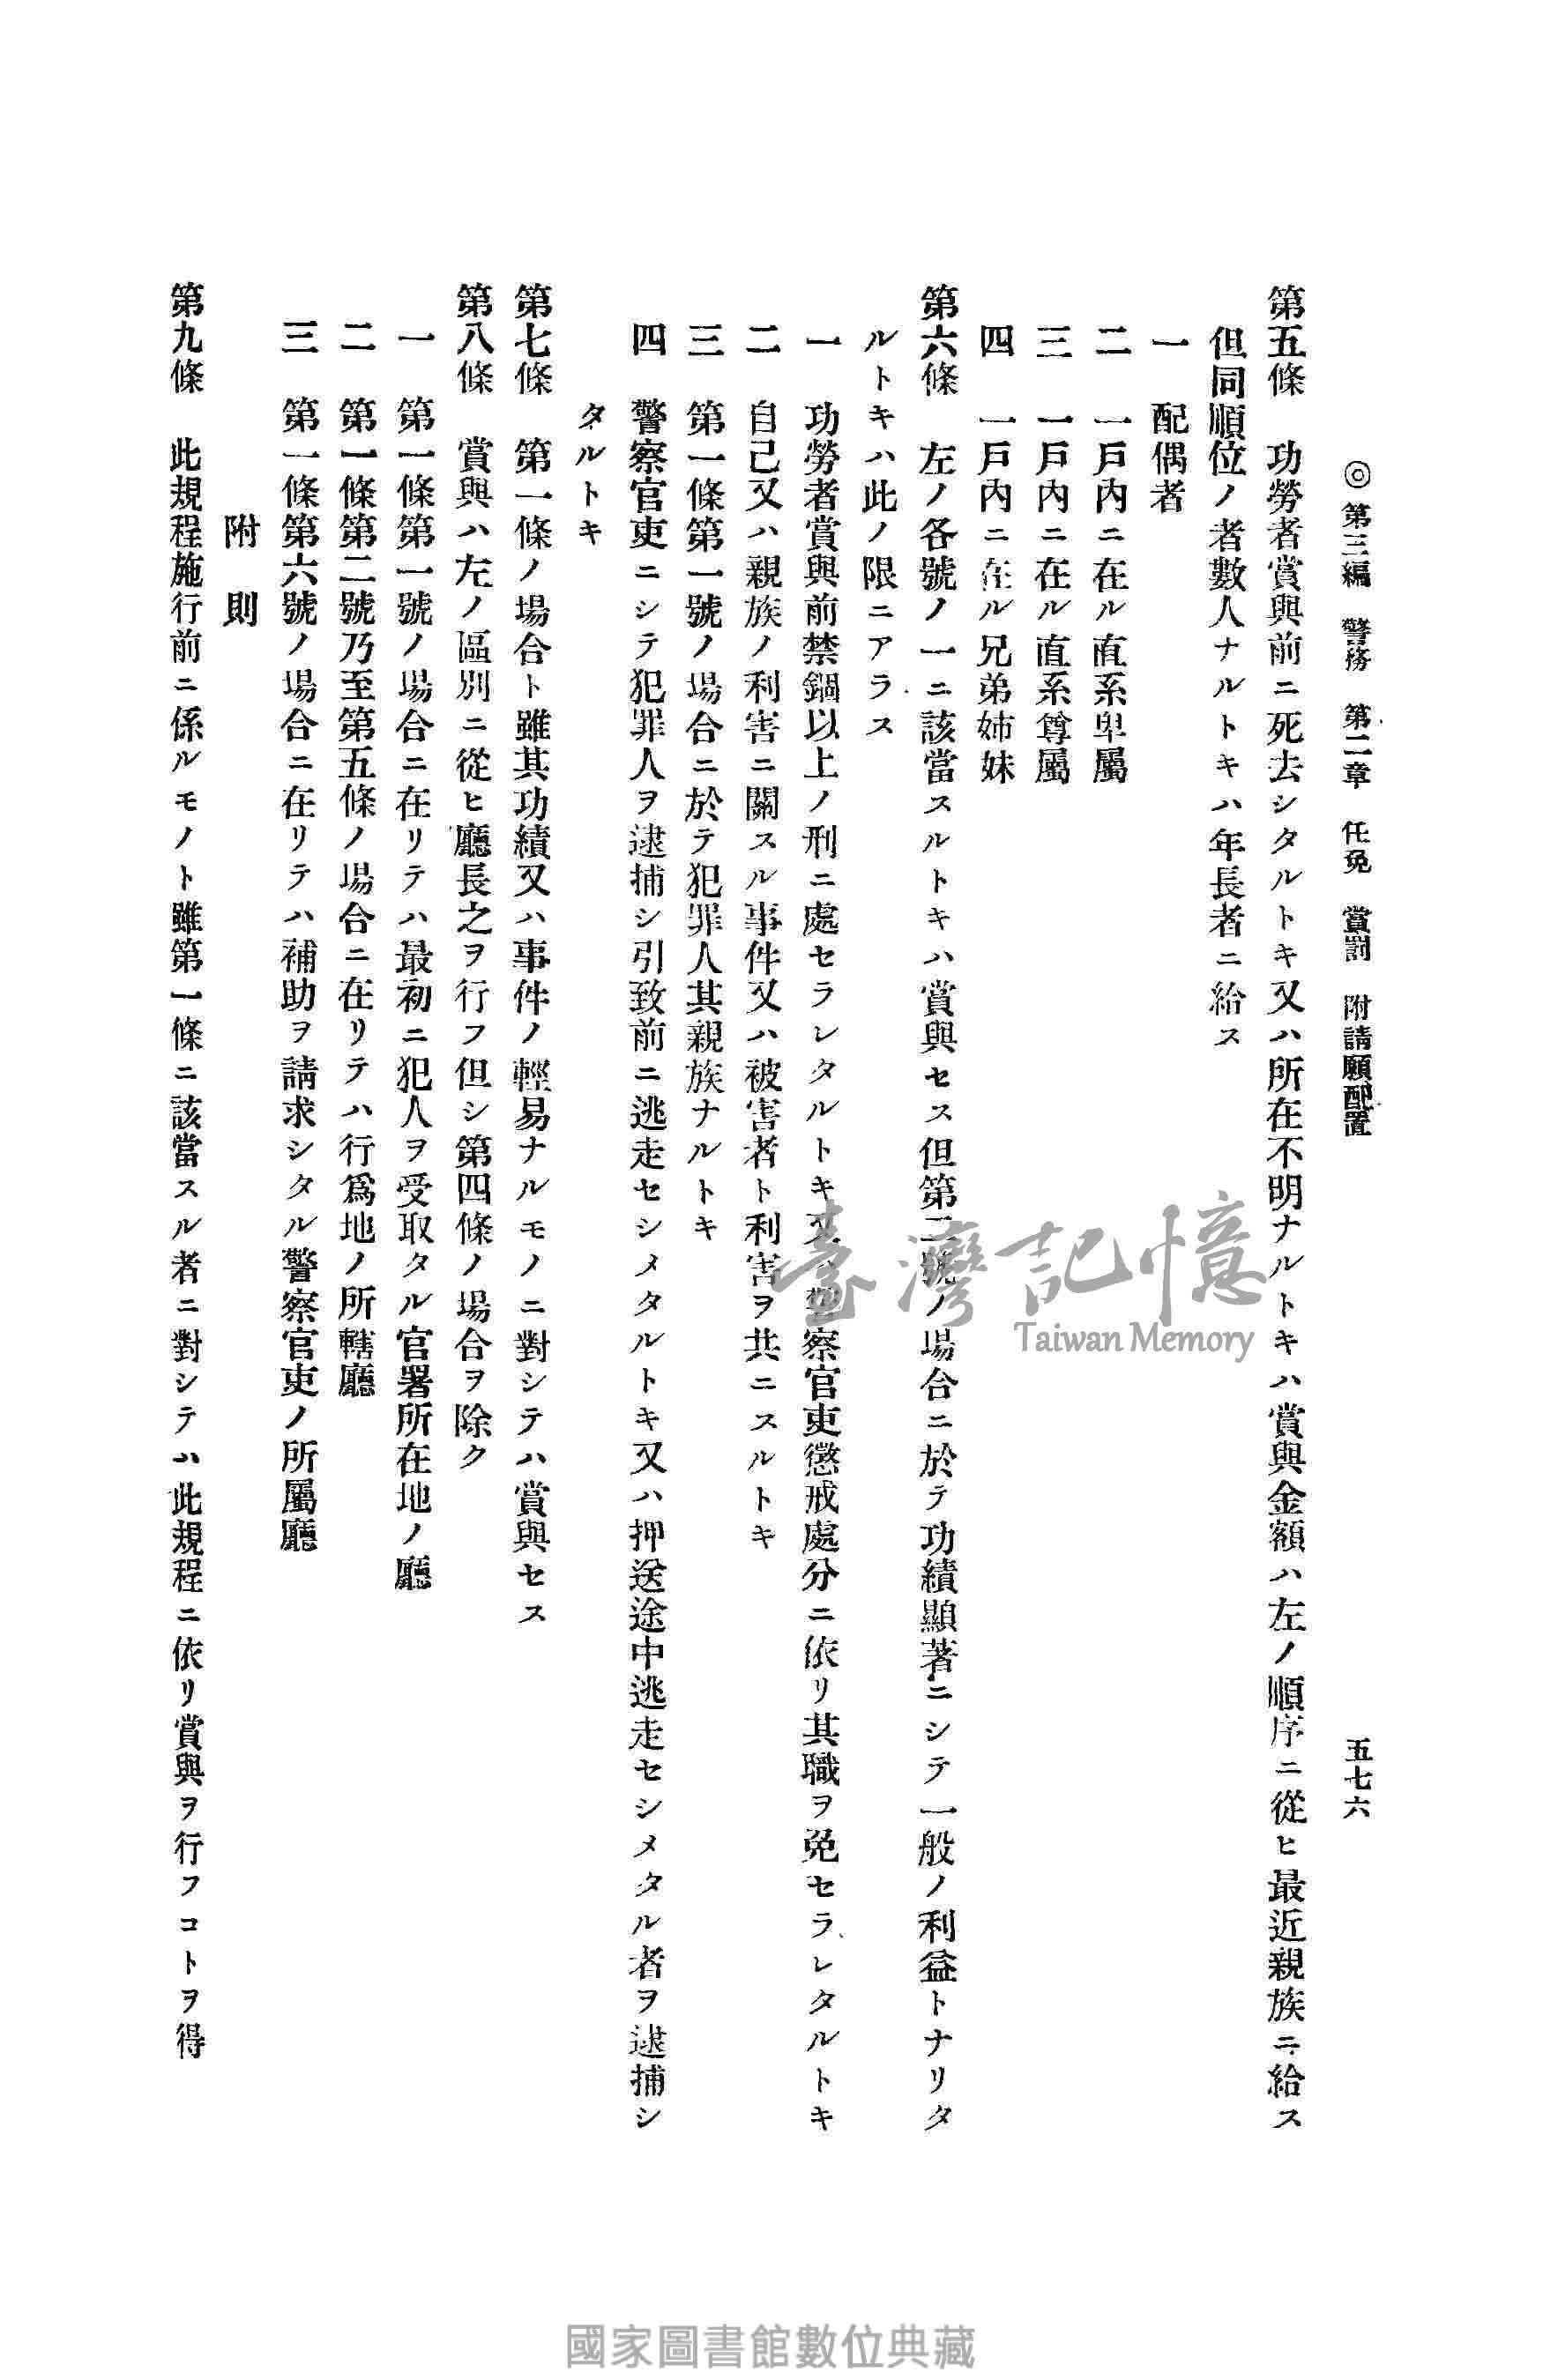 ◎第三編　警務　第二章　任免　賞罰　附請願配置　五七六
第五條　功勞者賞與前ニ死去シタルトキ又ハ所在不明ナルトキハ賞與金額ハ左ノ順序ニ從ヒ最近親族ニ給ス
但同順位ノ者數人ナルトキハ年長者ニ給ス
一　配偶者
二　一戶內ニ在ル直系卑屬
三　一戶內ニ在ル直系尊屬
四　一戶內ニ在ル兄弟姉妹
第六條　左ノ各號ノ一ニ該當スルトキハ賞與セス但第二號ノ場合ニ於テ功績顯著ニシテ一般ノ利益トナリタ
ルトキハ此ノ限ニアラス
一　功勞者賞與前禁錮以上ノ刑ニ處セラレタルトキ又ハ警察官吏懲戒處分ニ依リ其職ヲ免セラレタルトキ
二　自己又ハ親族ノ利害ニ關スル事件又ハ被害者ト利害ヲ共ニスルトキ
三　第一條第一號ノ場合ニ於テ犯罪人其親族ナルトキ
四　警察官吏ニシテ犯罪人ヲ逮捕シ引致前ニ逃走セシメタルトキ又ハ押送途中逃走セシメタル者ヲ逮捕シ
タルトキ
第七條　第一條ノ場合ト雖其功績又ハ事件ノ輕易ナルモノニ對シテハ賞與セス
第八條　賞與ハ左ノ區別ニ從ヒ廳長之ヲ行フ但シ第四條ノ場合ヲ除ク
一　第一條第一號ノ場合ニ在リテハ最初ニ犯人ヲ受取タル官署所在地ノ廳
二　第一條第二號乃至第五條ノ場合ニ在リテハ行爲地ノ所轄廳
三　第一條第六號ノ場合ニ在リテハ補助ヲ請求シタル警察官吏ノ所屬廳
附　則
第九條　此規程施行前ニ係ルモノト雖第一條ニ該當スル者ニ對シテハ此規程ニ依リ賞與ヲ行フコトヲ得
臺灣記憶
Taiwan Memory
國家圖書館數位典藏